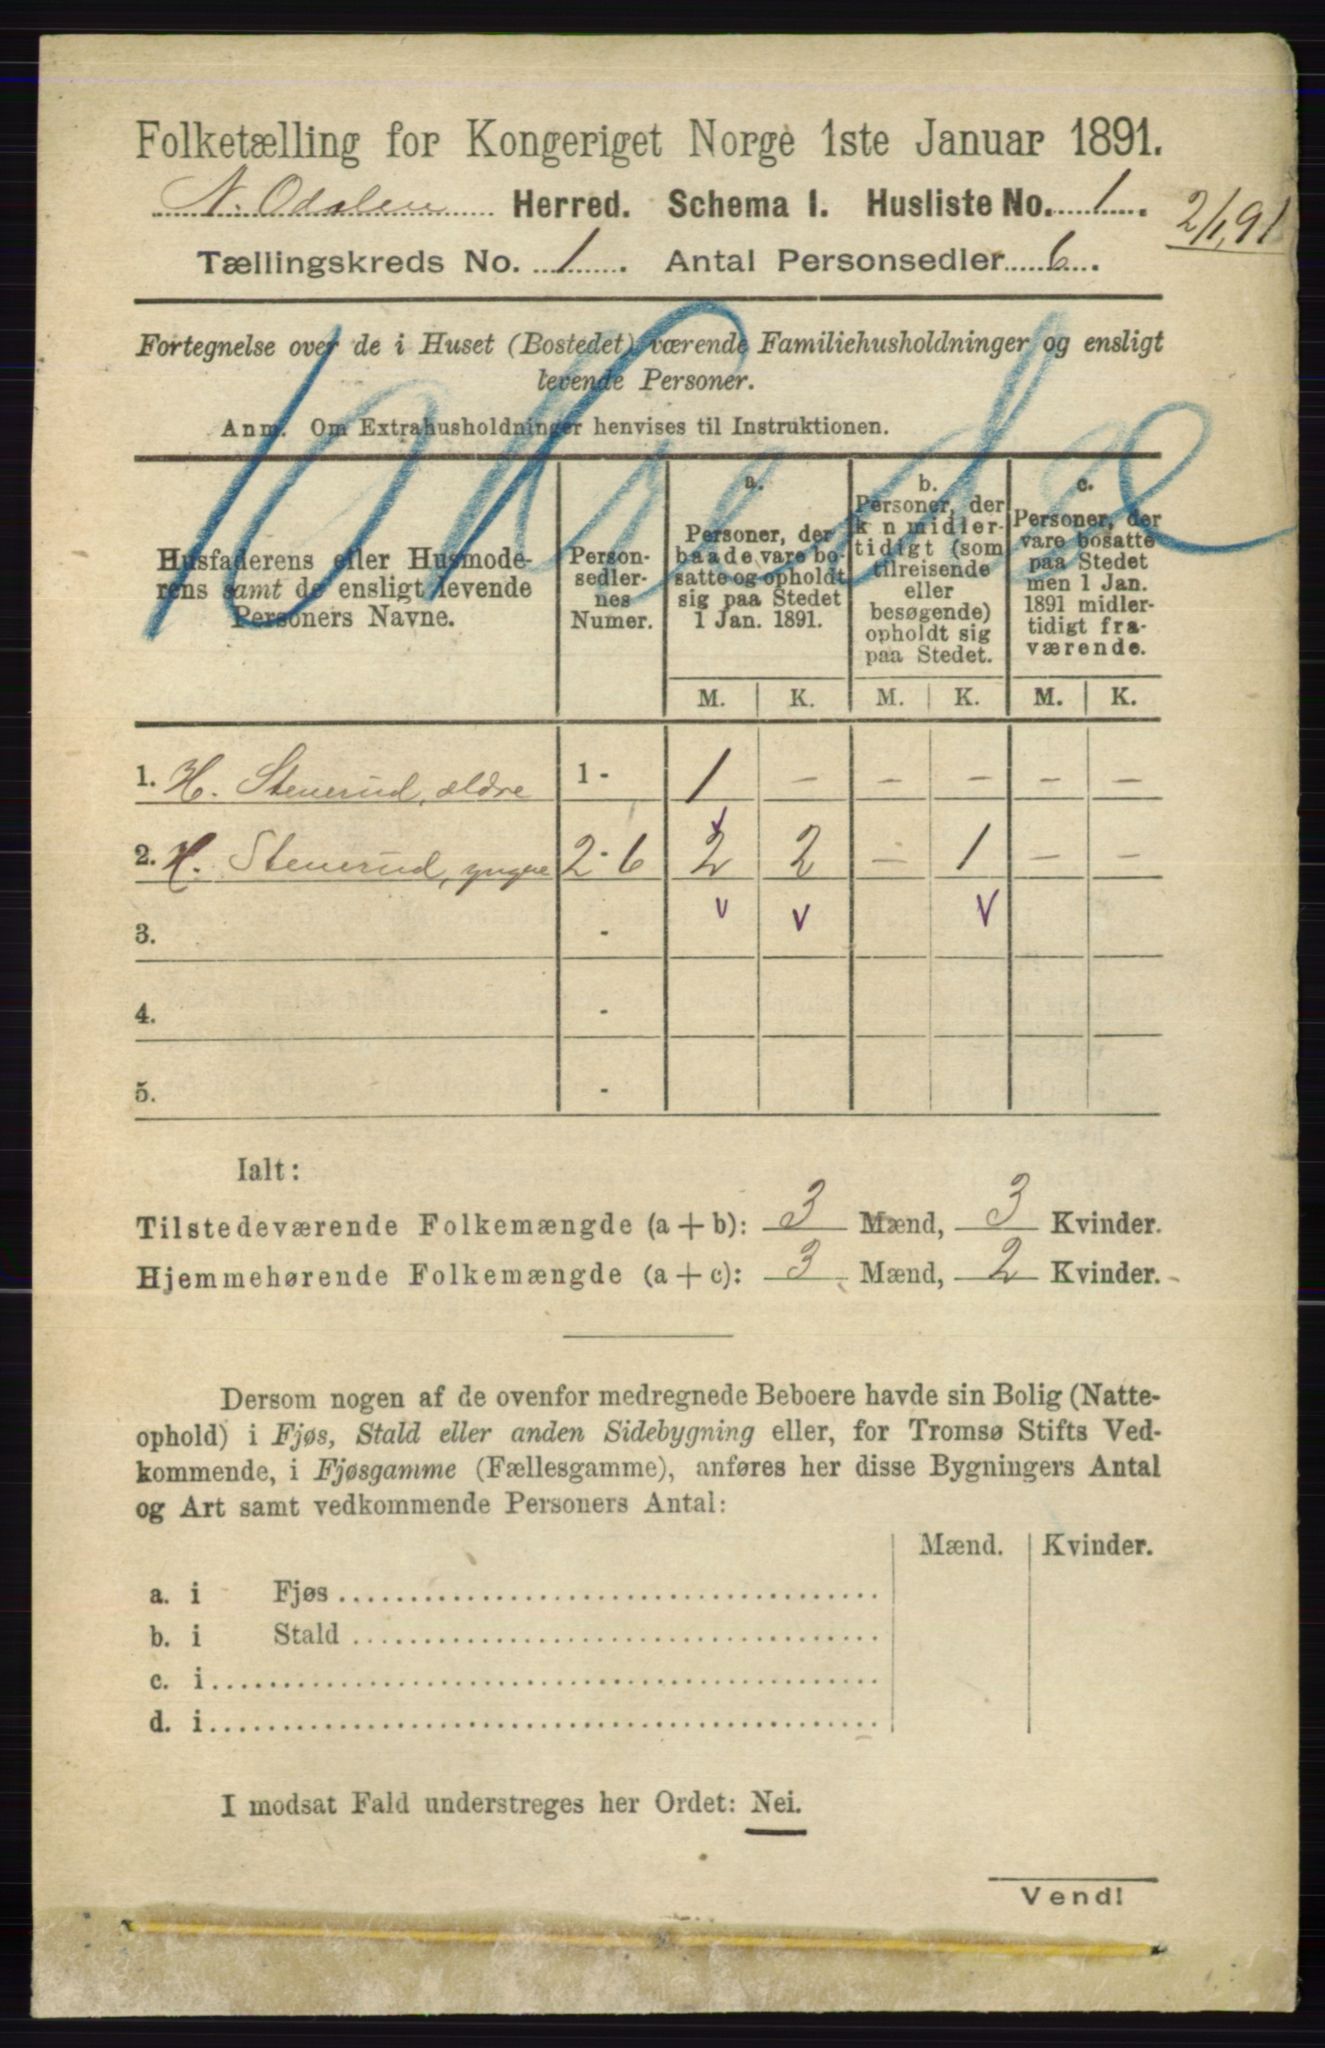 Folketælling for Kongeriget Norge 1ste Januar 1891.
N. Odalen Herred. Schema I. Husliste No. 1.
2/1 91
Tællingskreds No. 1. Antal Personsedler 6.
Fortegnelse over de i Huset (Bostedet) værende Familiehusholdninger og ensligt
levende Personer.
Anm. Om Extrahusholdninger henvises til Instruktionen.
Husfaderens eller Husmode-
rens samt de ensligt levende
Personers Navne.
Person-
sedler-
nes
Numer.
a.
Personer, der
baade vare bo-
satte og opholdt
sig paa Stedet
1 Jan. 1891.
b.
Personer, der
k n midler-
tidigt (som
tilreisende
eller
besøgende)
opholdt sig
paa Stedet.
c.
Personer, der
vare bosatte
paa Stedet
men 1 Jan.
1891 midler-
tidigt fra-
værende.
M. K. M. K. M. K.
1. H. Stenerud, ældre 1 - 1 – – – – –
2. H. Stenerud, yngre 2 - 6 2 2 – 1 – –
3. -
4. -
5. -
Ialt:
Tilstedeværende Folkemængde (a + b): 3 Mænd, 3 Kvinder.
Hjemmehørende Folkemængde (a + c): 3 Mænd, 2 Kvinder.
Dersom nogen af de ovenfor medregnede Beboere havde sin Bolig (Natte-
ophold) i Fjøs, Stald eller anden Sidebygning eller, for Tromsø Stifts Ved-
kommende, i Fjøsgamme (Fællesgamme), anføres her disse Bygningers Antal
og Art samt vedkommende Personers Antal:
Mænd. Kvinder.
a. i Fjøs
b. i Stald
c. i
d. i
I modsat Fald understreges her Ordet: Nei.
Vend!